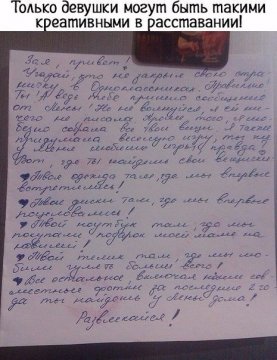 Только девушки могут быть такими
креативными в расставании!
Зая, привет!
Угадай, кто не закрыл свою стра
ничку в Одноклассниках. Правильно
Ты! А ведь тебе пришло сообщение
от Лены! Но не волнуйся, я ей ни-
чего не писала. Кроме того, я лю
безно собрала все твои вещи. Я также
придумала веселую игру, ты же
у меня любишь игры, правда?
Вот, где ты найдешь свои вещички:
Твоя одежда там, где мы впервые
встретились!
Твои диски там, где мы впервые
поцеловались!
Твой ноутбук там, где мы
покупали подарок моей маме на
юбилей!
Твой телик там, где мы лю-
били гулять больше всего!
Все остальное, включая наши сов
местные фотки за последние 2 го
да ты найдешь у Лены дома!
Развлекайся!